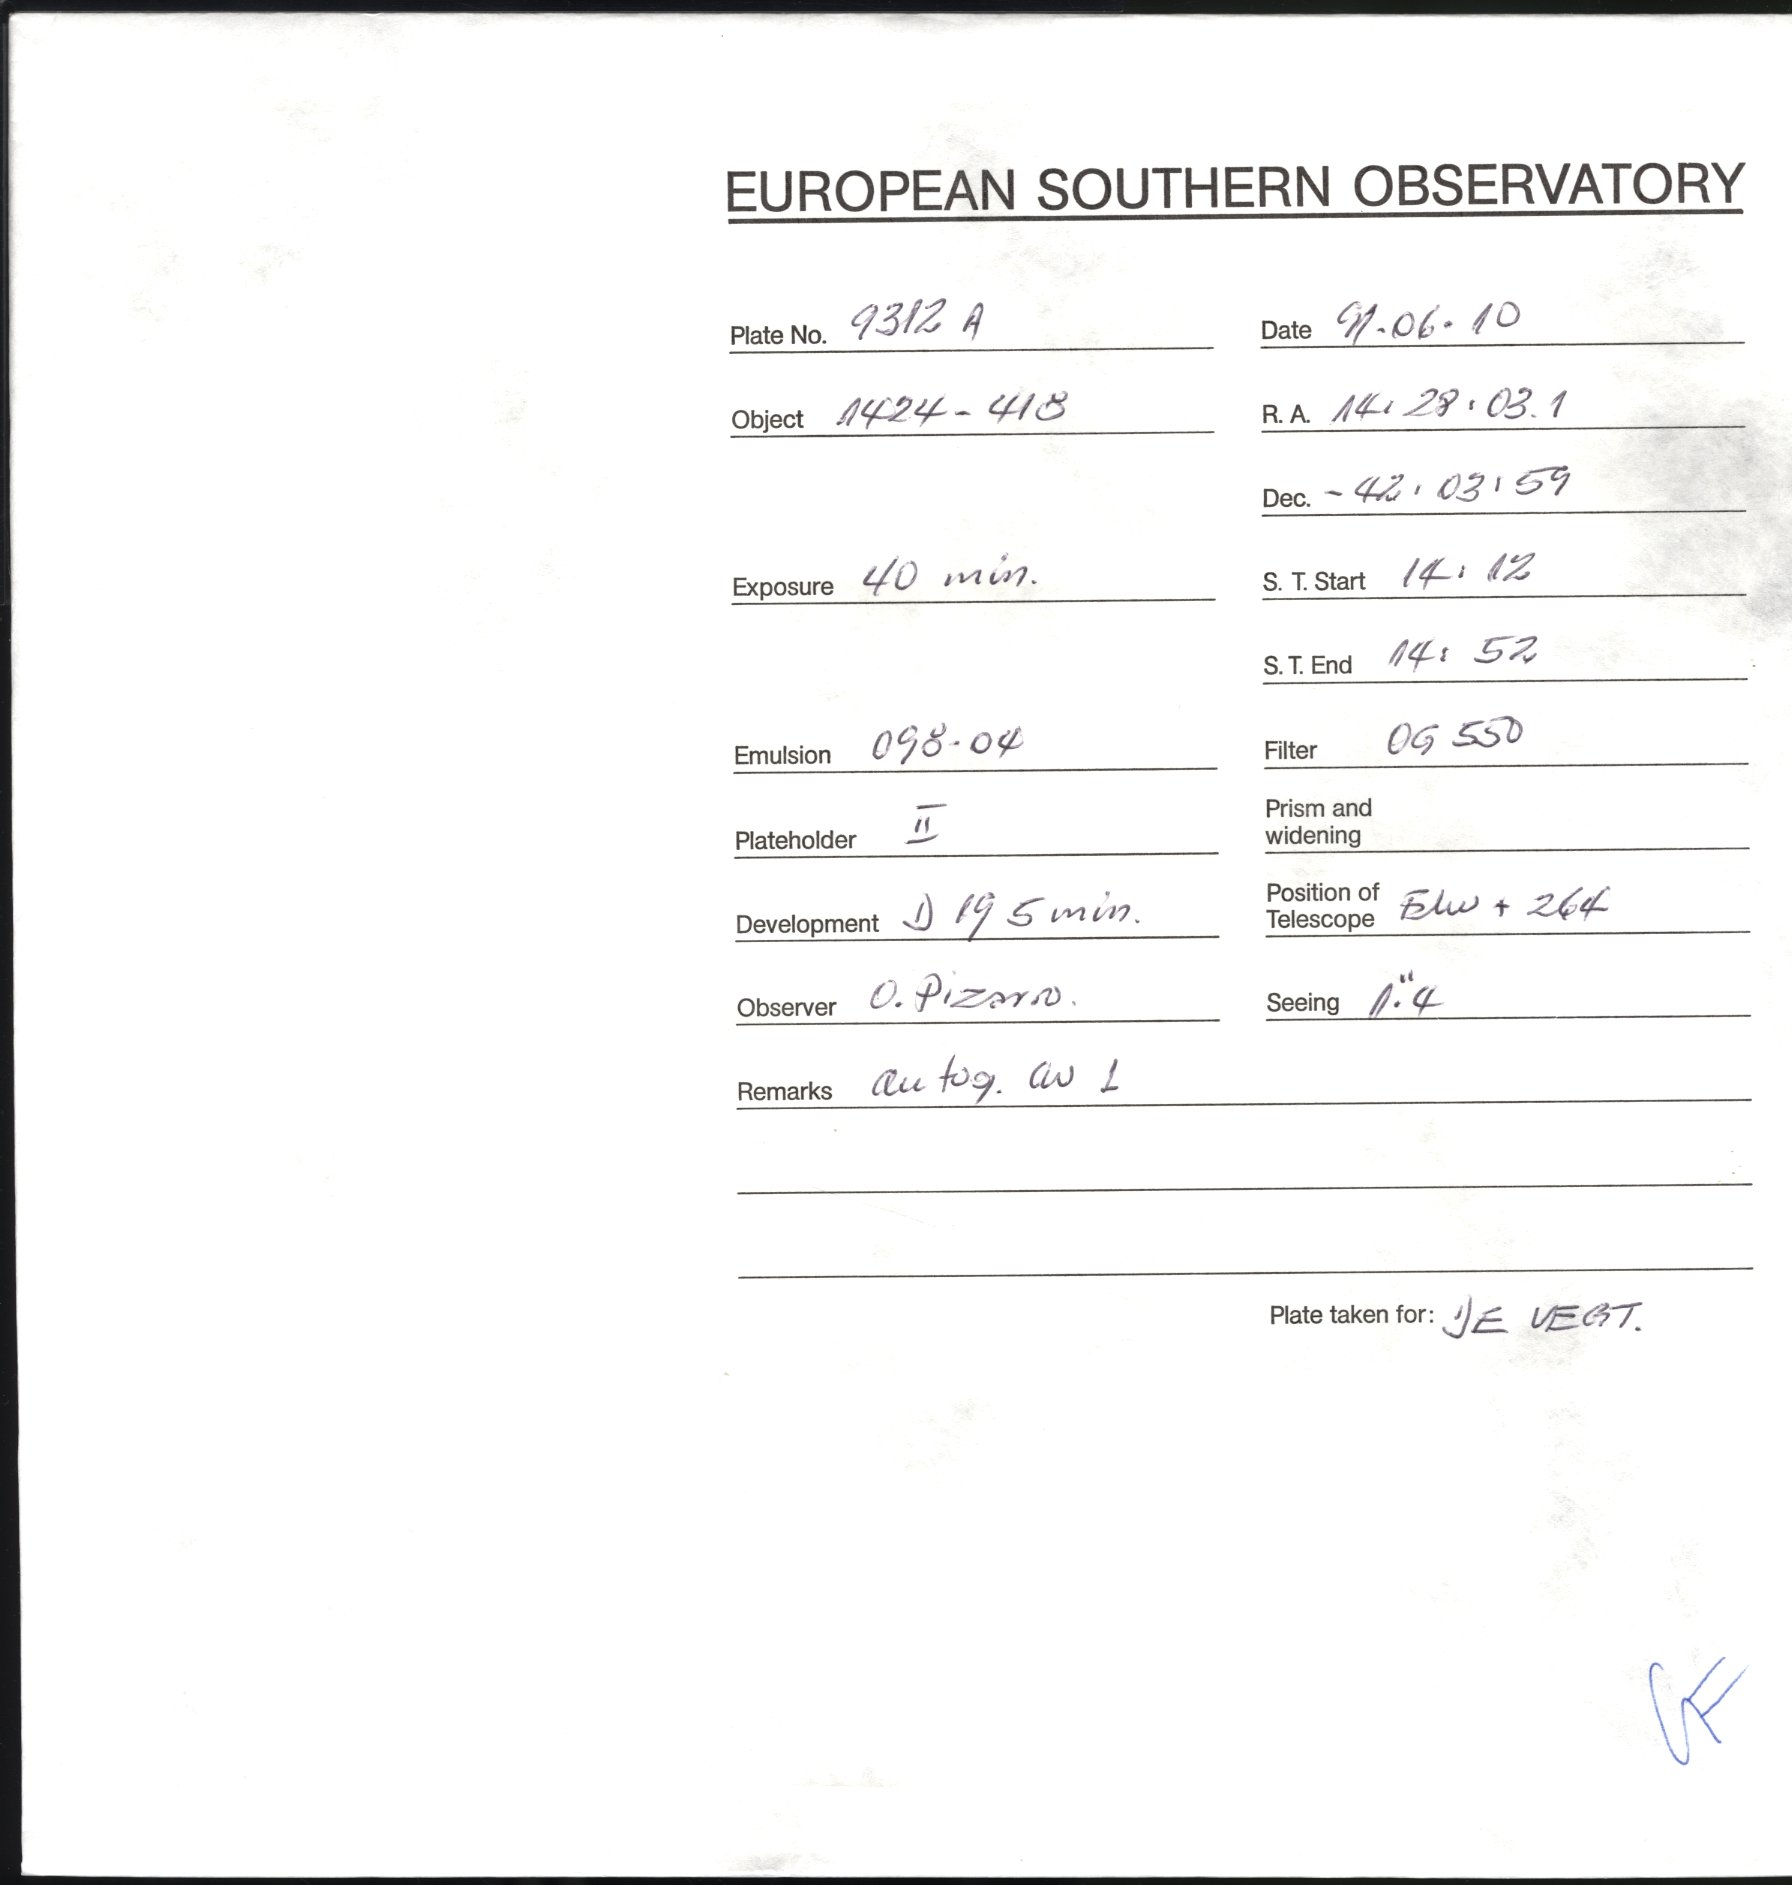 EUROPEAN SOUTHERN OBSERVATORY
Plate No. 9312 A
Date 91.06.10
Object 1424-418
R. A. 14:28:03.1
Dec. -42:03:59
Exposure 40 min.
S. T. Start 14:12
S. T. End 14:52
Emulsion 098-04
Filter OG 550
Plateholder II
Prism and
widening
Development D 19 5 min.
Position of
Telescope + 264
Observer O. Pizarro.
Seeing 1."4
Remarks autog.
Plate taken for: DE VEGT.